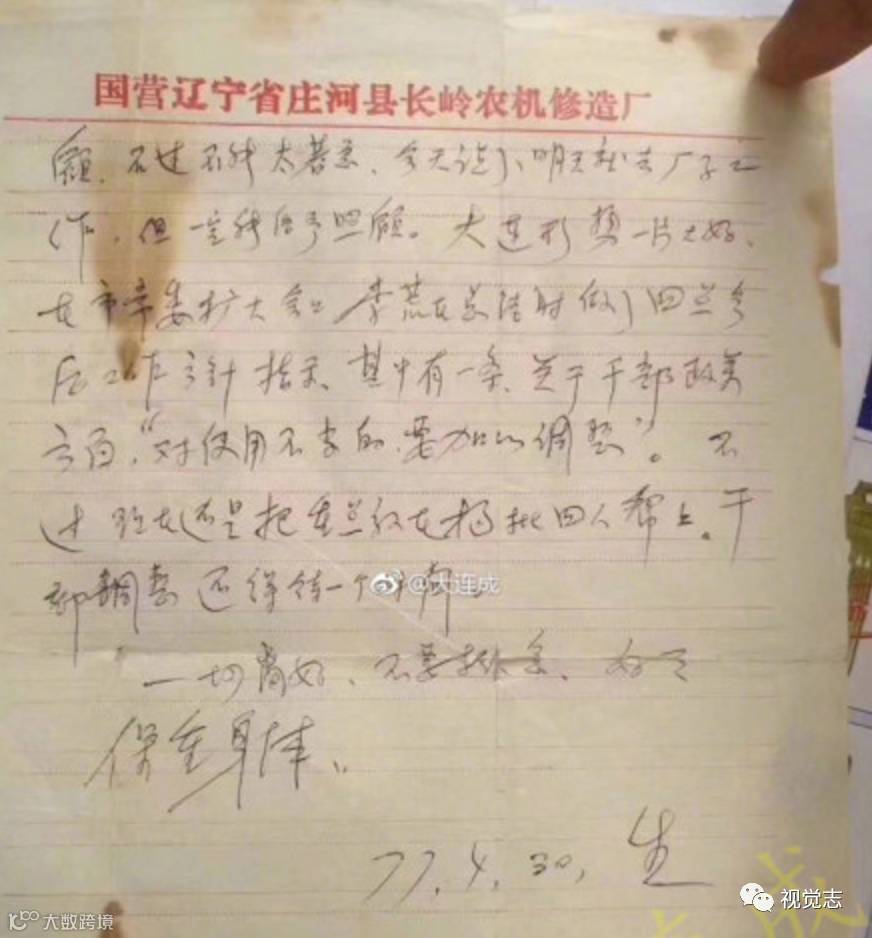 国营辽宁省庄河县长岭农机修造厂
顾，不过不能太着急，今天说了明天就去厂子工
作，但一定能给予照顾。大连形势一片大好，
在市常委扩大会上李荒在总结时做了四点今
后工作方针指示，其中有一条，关于干部政策
方面，“对使用不当的，要加以调整”。不
过现在还是把重点放在揭批四人帮上。干
部调整还得待一个时期。
@大连成
一切尚好，不要挂念，好了
保重身体。
77.4.30，生
视觉志
大数跨境